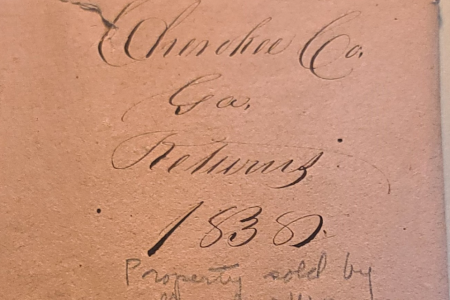 Cherokee Co.
Ga.
Returns
1838.
Property sold by